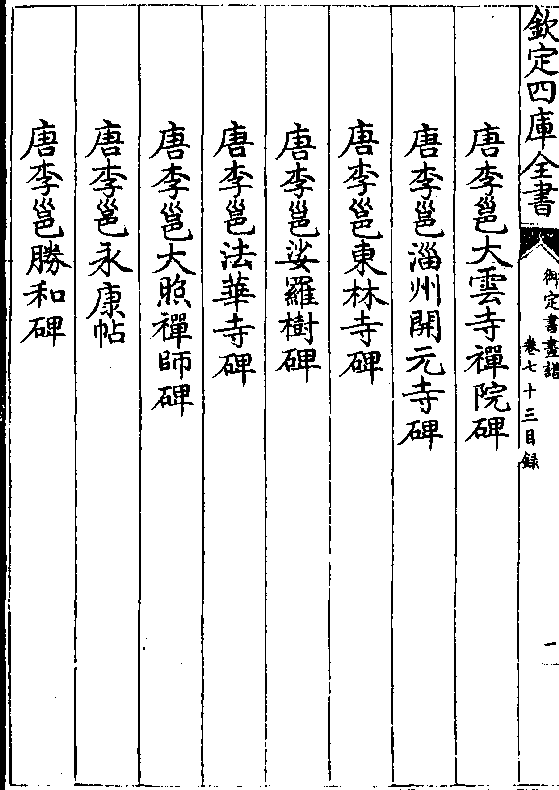 欽定四庫全書
御定書畫譜
卷七十三目録
一
唐李邕大雲寺禪院碑
唐李邕淄州開元寺碑
唐李邕娑羅樹碑
唐李邕東林寺碑
唐李邕法華寺碑
唐李邕大照禪師碑
唐李邕永康帖
唐李邕勝和碑